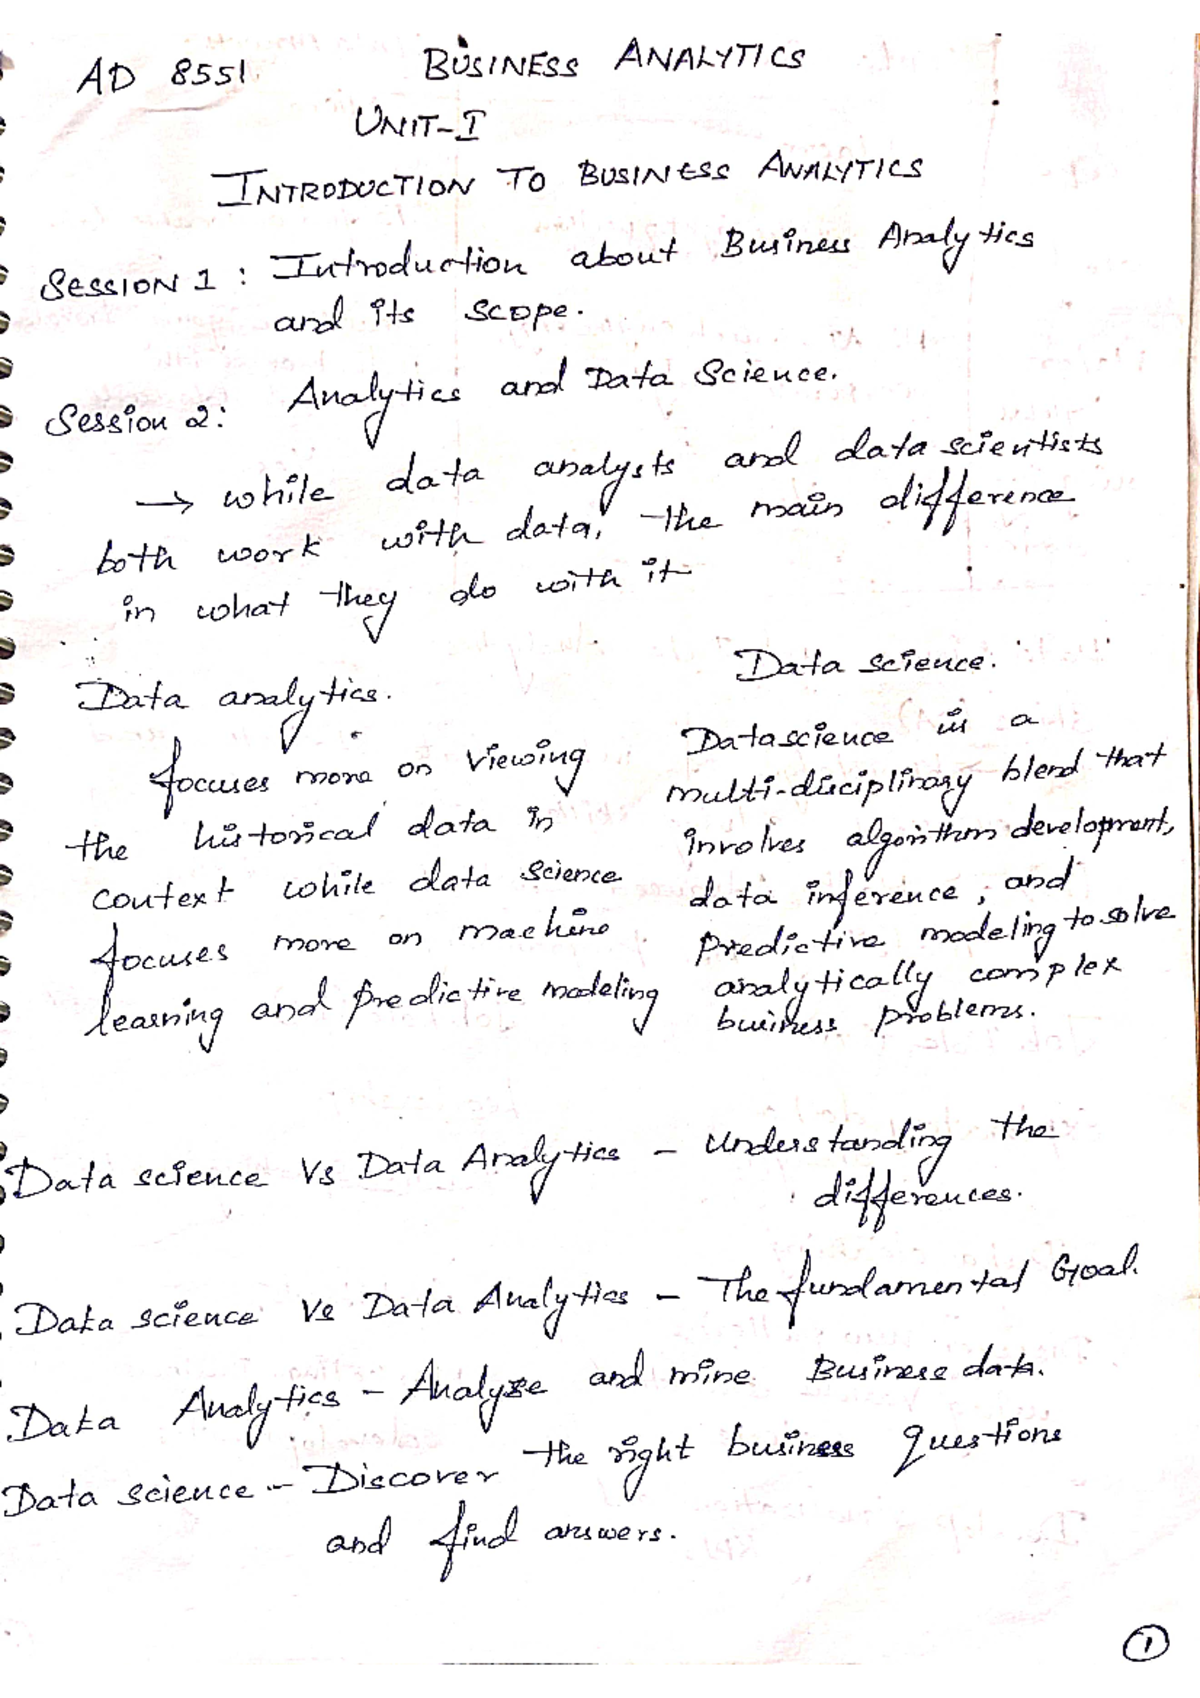 AD 8551 BUSINESS ANALYTICS
UNIT-I
INTRODUCTION TO BUSINESS ANALYTICS
SESSION 1 : Introduction about Business Analytics
and its scope.
Session 2: Analytics and Data Science.
→ while data analysts and data scientists
both work with data, the main difference
in what they do with it
Data analytics.
focuses more on viewing
the historical data in
context while data science
focuses more on machine
learning and predictive modeling
Data science.
Datascience is a
multi-disciplinary blend that
involves algorithm development,
data inference, and
predictive modeling to solve
analytically complex
business problems.
Data science Vs Data Analytics - Understanding the
differences.
Data science Vs Data Analytics - The fundamental Goal.
Data Analytics - Analyze and mine Business data.
Data science - Discover the right business questions
and find answers.
1